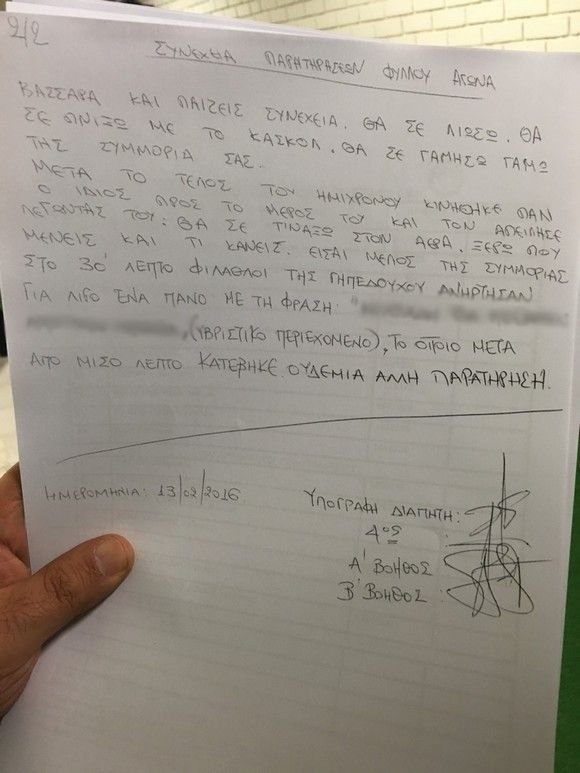 2/2
ΣΥΝΕΧΕΙΑ ΠΑΡΑΤΗΡΗΣΕΩΝ ΦΥΛΛΟΥ ΑΓΩΝΑ
ΒΑΣΣΑΡΑ ΚΑΙ ΠΑΙΖΕΙΣ ΣΥΝΕΧΕΙΑ. ΘΑ ΣΕ ΛΙΩΣΩ. ΘΑ
ΣΕ ΠΝΙΞΩ ΜΕ ΤΟ ΚΑΣΚΟΛ. ΘΑ ΣΕ ΓΑΜΗΣΩ ΓΑΜΩ
ΤΗΣ ΣΥΜΜΟΡΙΑ ΣΑΣ.
ΜΕΤΑ ΤΟ ΤΕΛΟΣ ΤΟΥ ΗΜΙΧΡΟΝΟΥ ΚΙΝΗΘΗΚΕ ΠΑΛΙ
Ο ΙΔΙΟΣ ΠΡΟΣ ΤΟ ΜΕΡΟΣ ΤΟΥ ΚΑΙ ΤΟΝ ΑΠΕΙΛΗΣΕ
ΛΕΓΟΝΤΑΣ ΤΟΥ: ΘΑ ΣΕ ΤΙΝΑΞΩ ΣΤΟΝ ΑΕΡΑ. ΞΕΡΩ ΠΟΥ
ΜΕΝΕΙΣ ΚΑΙ ΤΙ ΚΑΝΕΙΣ. ΕΙΣΑΙ ΜΕΛΟΣ ΤΗΣ ΣΥΜΜΟΡΙΑΣ
ΣΤΟ 30' ΛΕΠΤΟ ΦΙΛΑΘΛΟΙ ΤΗΣ ΓΗΠΕΔΟΥΧΟΥ ΑΝΗΡΤΗΣΑΝ
ΓΙΑ ΛΙΓΟ ΕΝΑ ΠΑΝΟ ΜΕ ΤΗ ΦΡΑΣΗ: "
,(ΥΒΡΙΣΤΙΚΟ ΠΕΡΙΕΧΟΜΕΝΟ), ΤΟ ΟΠΟΙΟ ΜΕΤΑ
ΑΠΟ ΜΙΣΟ ΛΕΠΤΟ ΚΑΤΕΒΗΚΕ. ΟΥΔΕΜΙΑ ΑΛΛΗ ΠΑΡΑΤΗΡΗΣΗ.
ΗΜΕΡΟΜΗΝΙΑ: 13/02/2016
ΥΠΟΓΡΑΦΗ ΔΙΑΙΤΗΤΗ:
4ος :
Α' ΒΟΗΘΟΣ :
Β' ΒΟΗΘΟΣ :